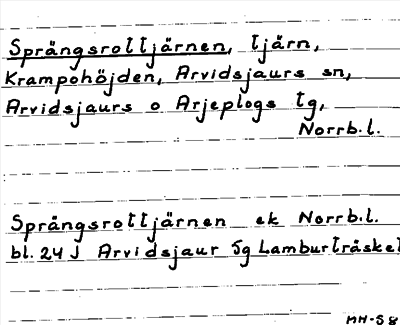 Språngsrottjärnen, tjärn,
Krampohöjden, Arvidsjaurs sn,
Arvidsjaurs o Arjeplogs tg,
Norrb.l.
Språngsrottjärnen ek Norrb.l.
bl. 24 J Arvidsjaur 5g Lamburträsket
MH-S 8